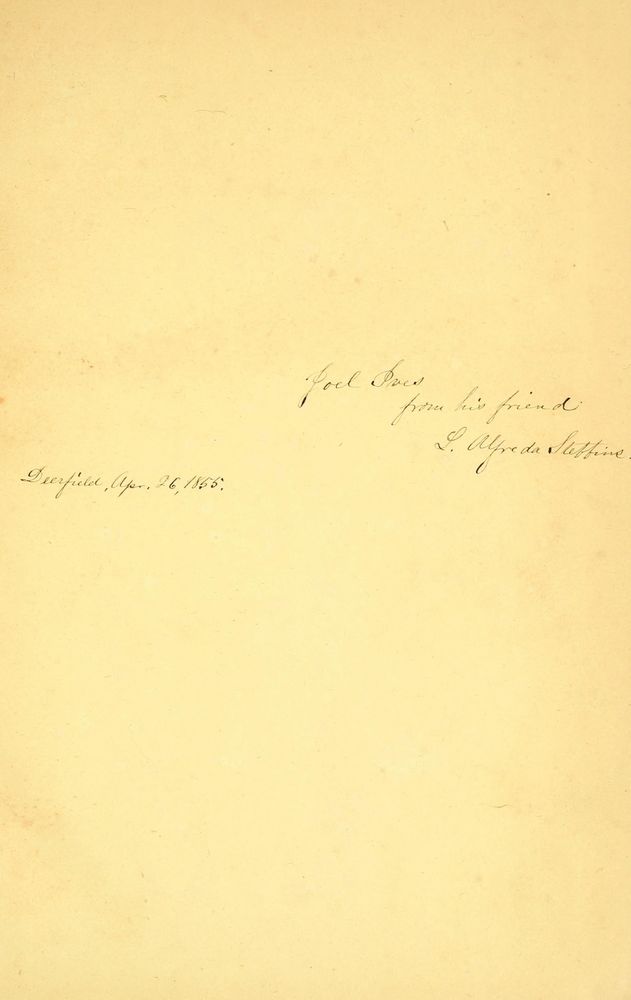 Joel Ives
from his friend
L. Alfreda Stebbins.
Deerfield, Apr. 26, 1855.